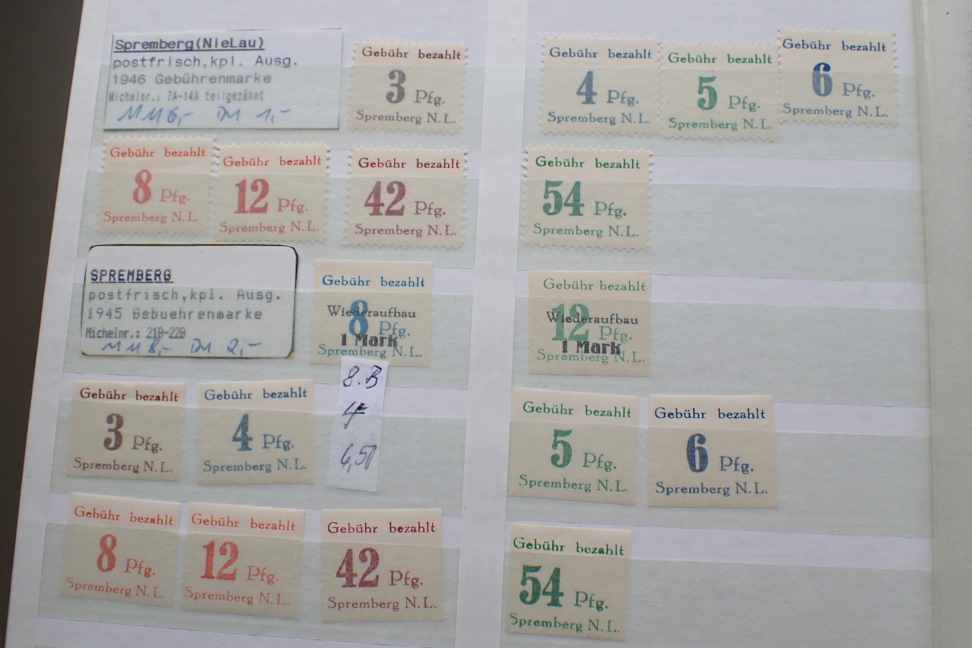 Spremberg(NieLau)
postfrisch,kpl. Ausg.
1946 Gebührenmarke
Michelnr.: 7A-14A teilgezähnt
M 116,- DM 1,-
Gebühr bezahlt
3 Pfg.
Spremberg N.L.
Gebühr bezahlt
4 Pfg.
Spremberg N.L.
Gebühr bezahlt
5 Pfg.
Spremberg N.L.
Gebühr bezahlt
6 Pfg.
Spremberg N.L.
Gebühr bezahlt
8 Pfg.
Spremberg N.L.
Gebühr bezahlt
12 Pfg.
Spremberg N.L.
Gebühr bezahlt
42 Pfg.
Spremberg N.L.
Gebühr bezahlt
54 Pfg.
Spremberg N.L.
SPREMBERG
postfrisch,kpl. Ausg.
1945 Gebuehrenmarke
Michelnr.: 21B-22B
DM 2,-
Gebühr bezahlt
Wiederaufbau
8 Pfg.
1 Mark
Spremberg N.L.
Gebühr bezahlt
Wiederaufbau
12 Pfg.
1 Mark
Spremberg N.L.
8.B
Gebühr bezahlt
3 Pfg.
Spremberg N.L.
Gebühr bezahlt
4 Pfg.
Spremberg N.L.
Gebühr bezahlt
5 Pfg.
Spremberg N.L.
Gebühr bezahlt
6 Pfg.
Spremberg N.L.
Gebühr bezahlt
8 Pfg.
Spremberg N.L.
Gebühr bezahlt
12 Pfg.
Spremberg N.L.
Gebühr bezahlt
42 Pfg.
Spremberg N.L.
Gebühr bezahlt
54 Pfg.
Spremberg N.L.